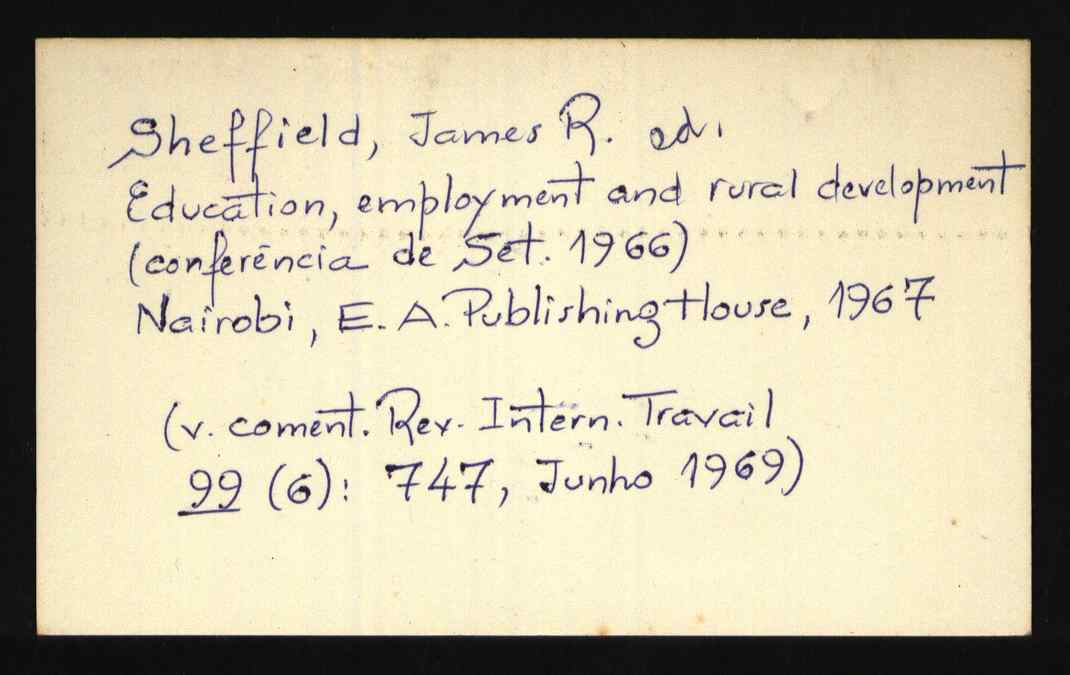 Sheffield, James R. ed.
Education, employment and rural development
(conferência de Set. 1966)
Nairobi, E. A. Publishing House, 1967
(v. coment. Rev. Intern. Travail
99 (6): 747, Junho 1969)